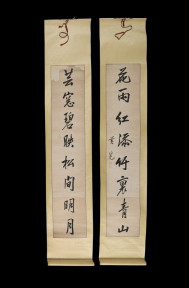 花雨红添竹裏青山
芸窓碧映松间明月